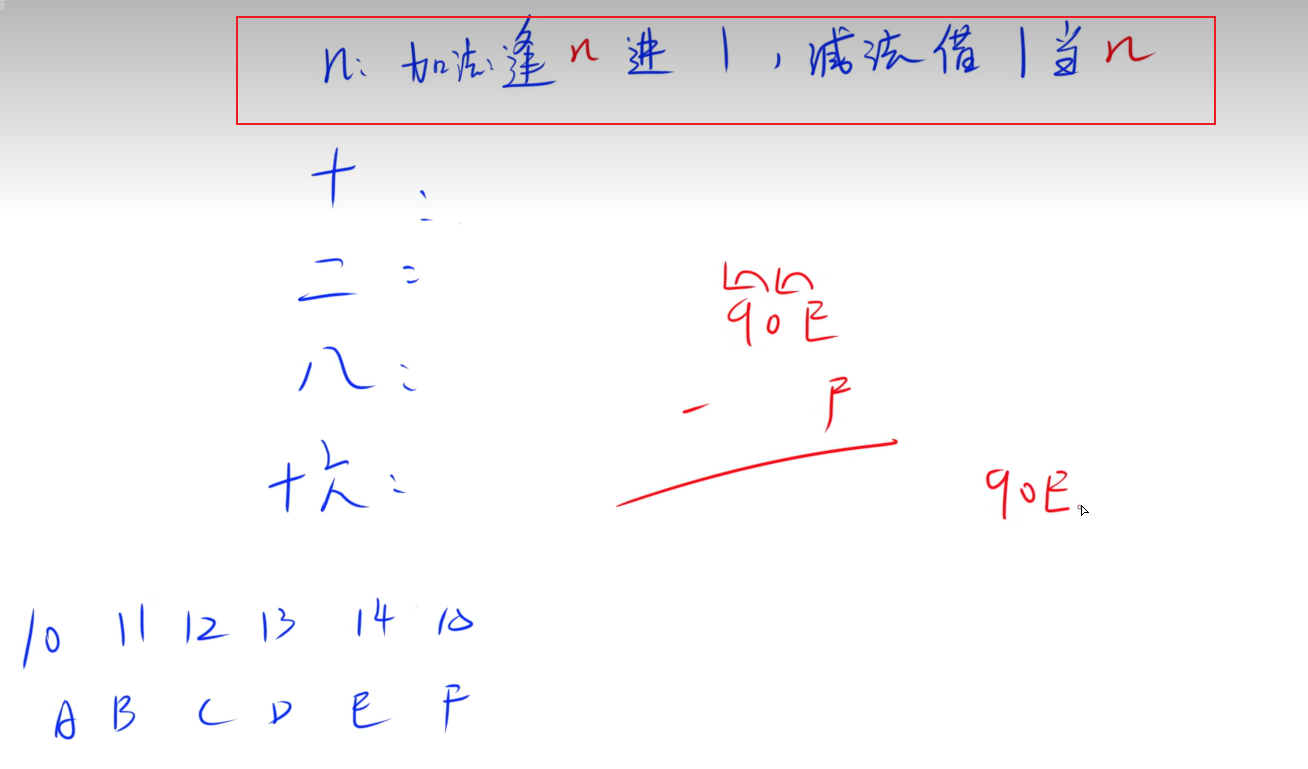 n: 加法:逢 n 进 1 , 减法 借 1 当 n
十 :
二 :
八 :
十六 :
90E
- F
90E
10 11 12 13 14 15
A B C D E F